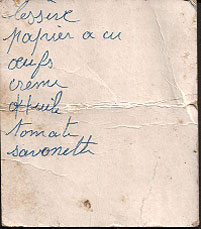 lessive
papier a cu
œufs
creme
Huile
tomate
savonette